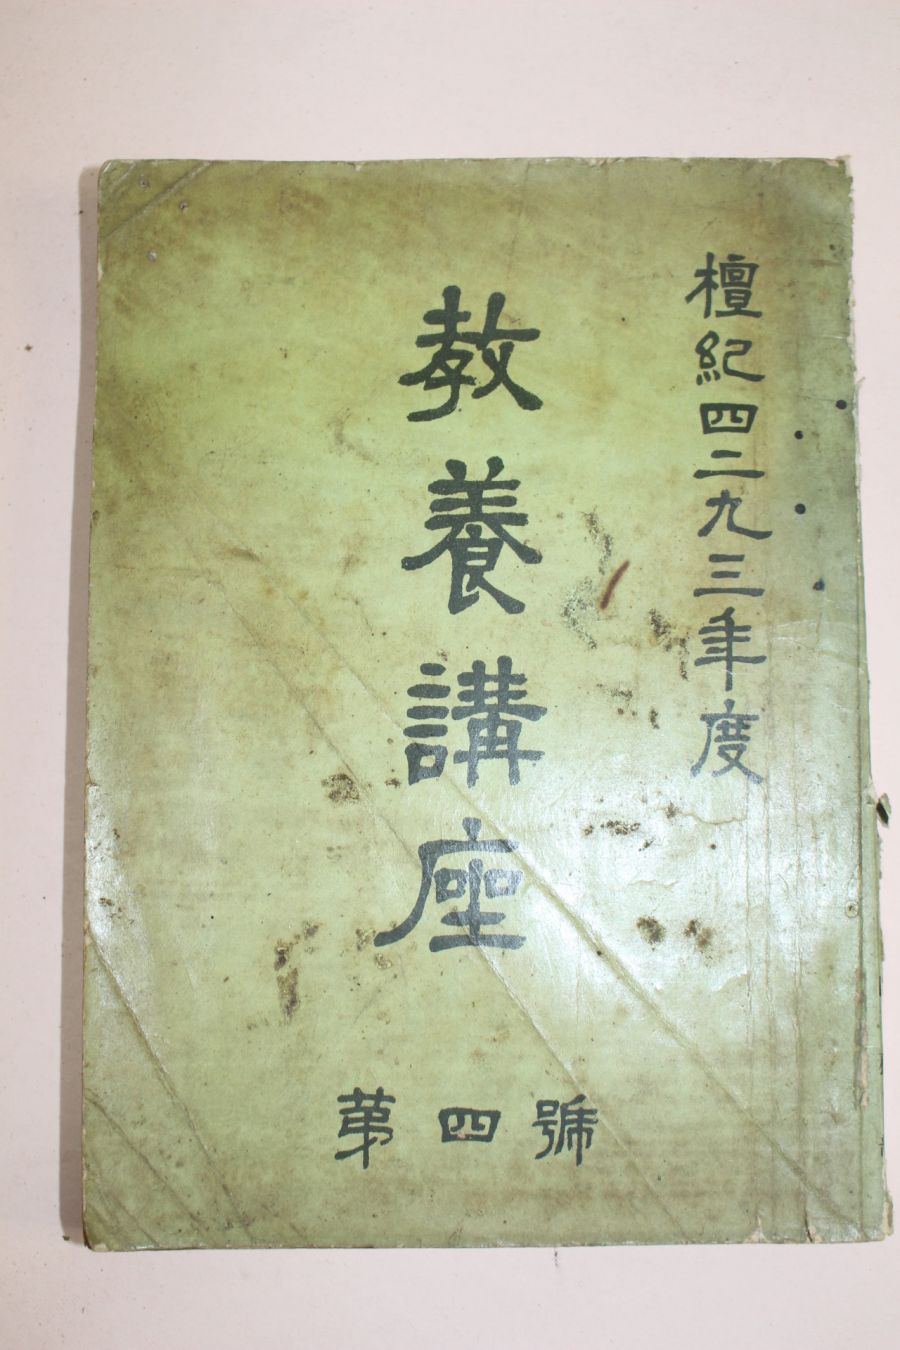 檀紀四二九三年度
教養講座
第四號